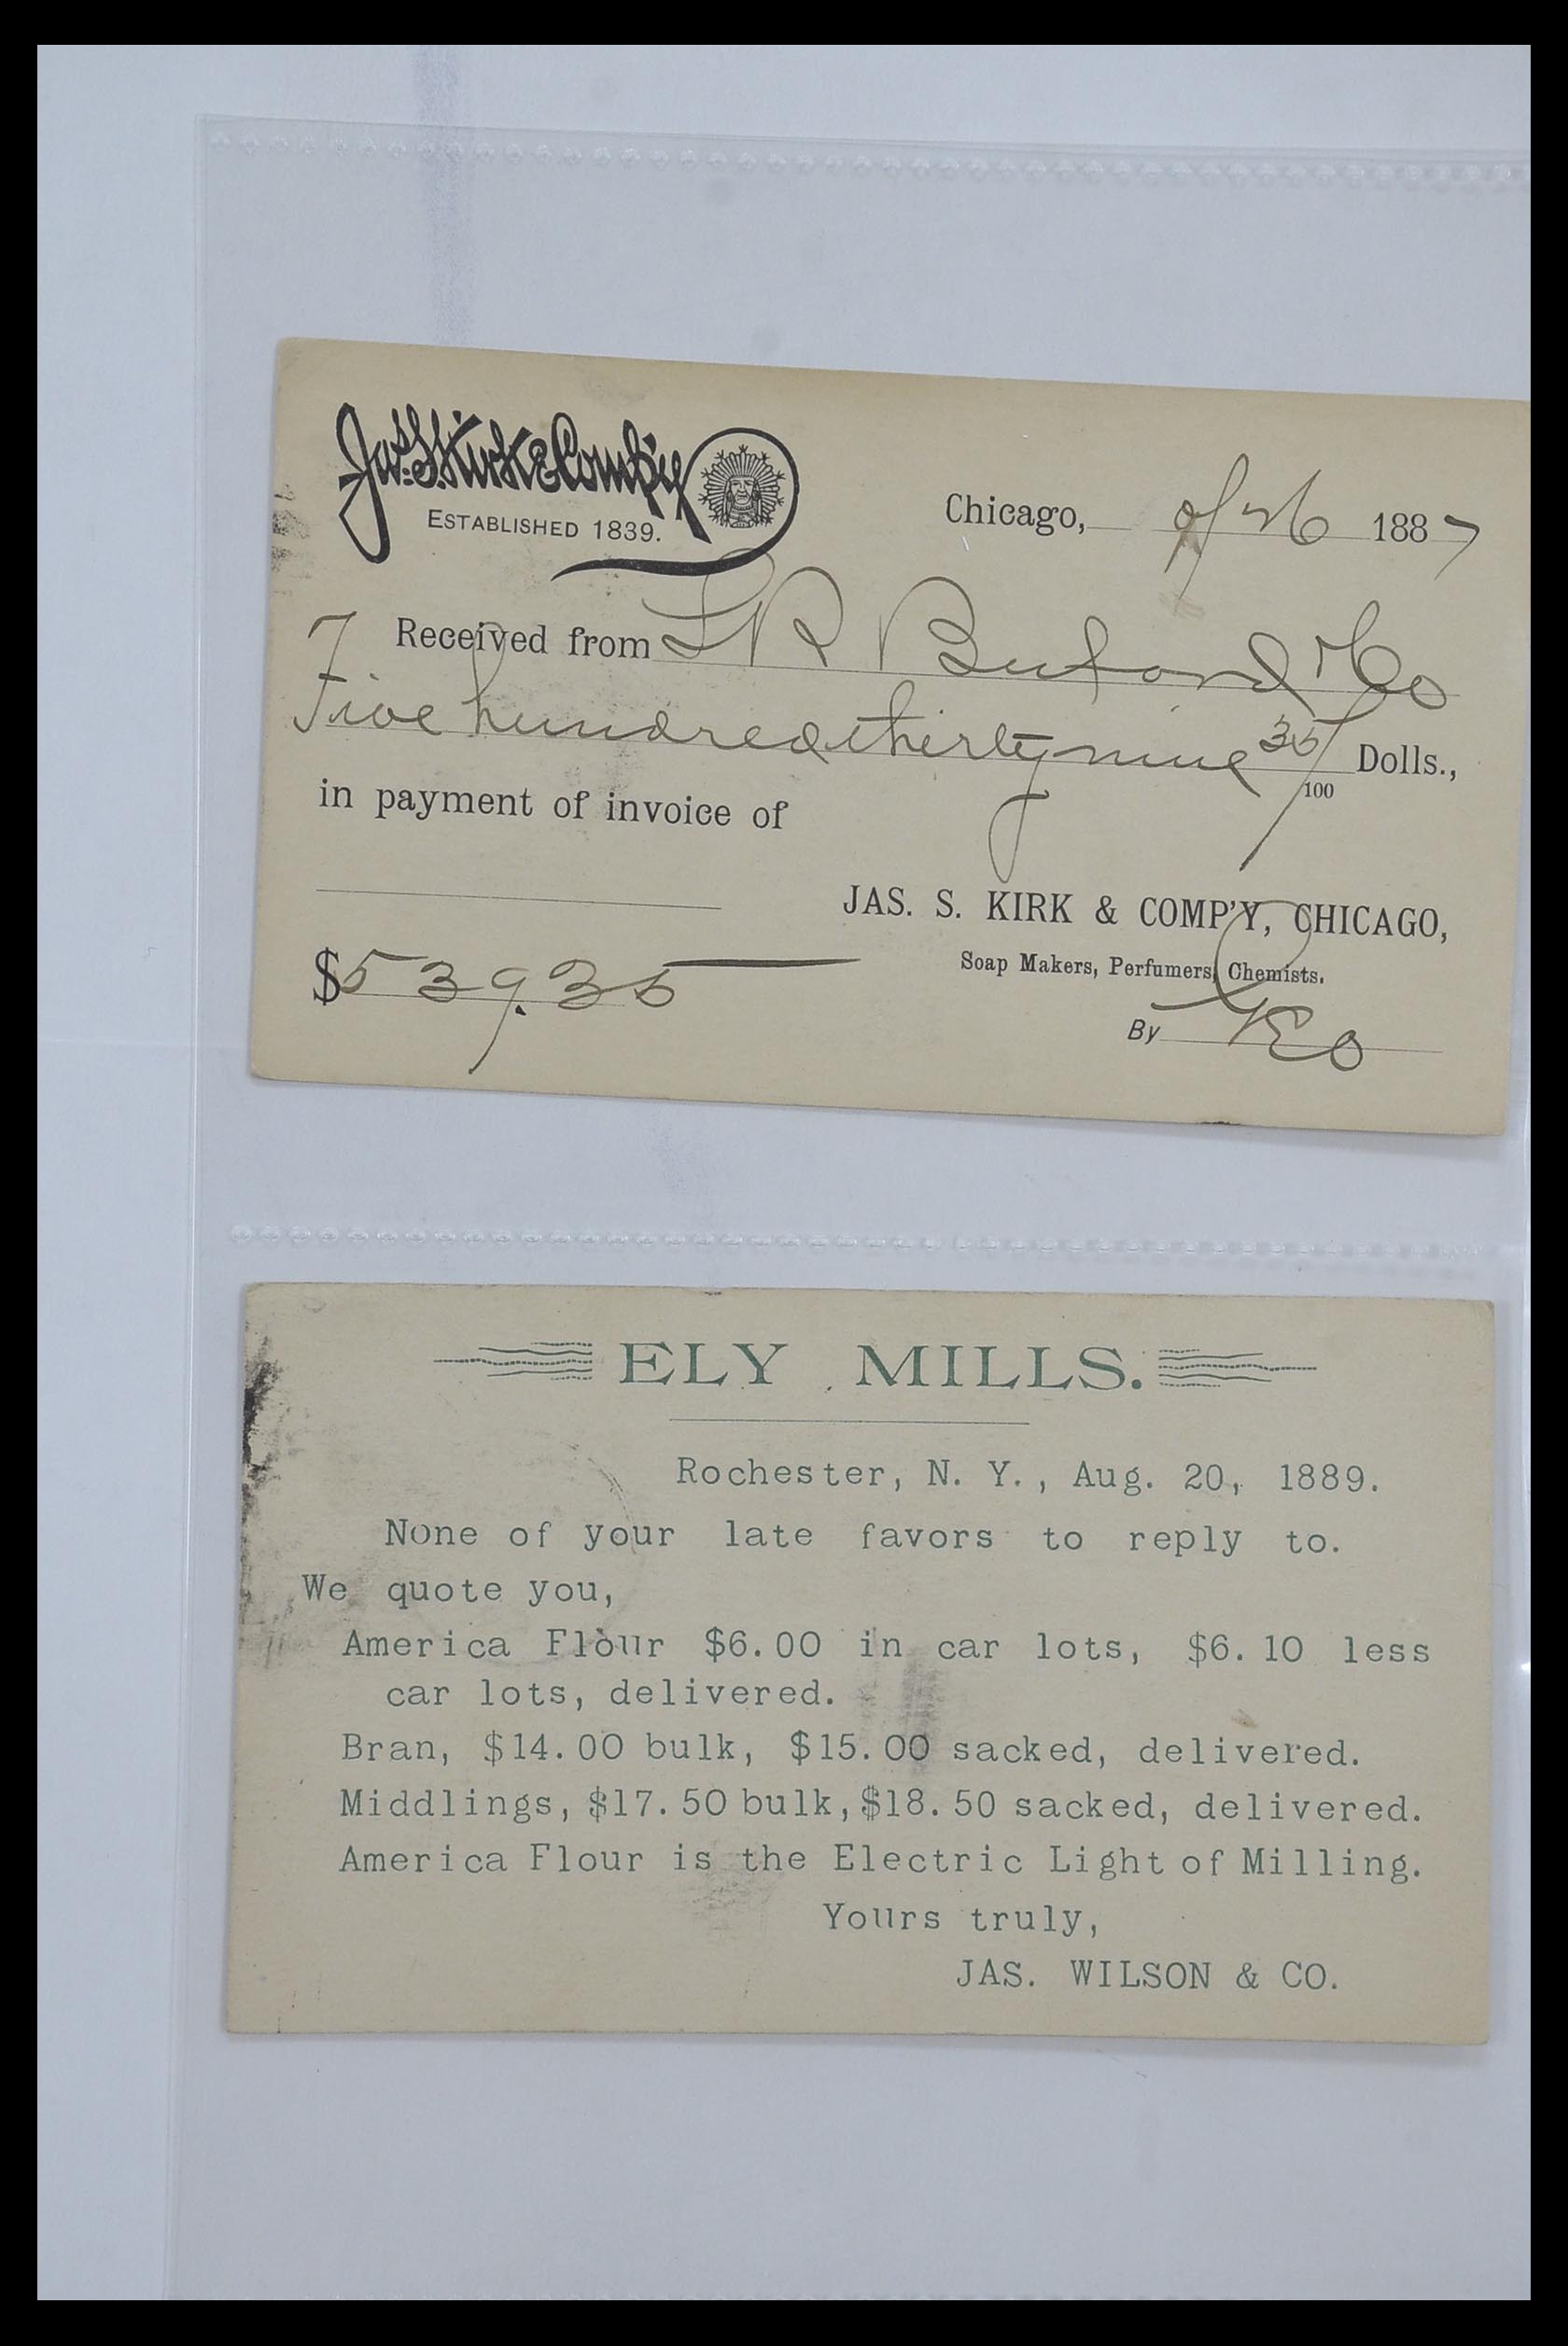 Jas. S. Kirk & Comp'y
ESTABLISHED 1839.
Chicago, 26 1887
Received from L R Buford & Co
Five hundred thirty nine 35/100 Dolls.,
in payment of invoice of
JAS. S. KIRK & COMP'Y, CHICAGO,
Soap Makers, Perfumers, Chemists.
$539.35
By
ELY MILLS.
Rochester, N. Y., Aug. 20, 1889.
None of your late favors to reply to.
We quote you,
America Flour $6.00 in car lots, $6.10 less
car lots, delivered.
Bran, $14.00 bulk, $15.00 sacked, delivered.
Middlings, $17.50 bulk, $18.50 sacked, delivered.
America Flour is the Electric Light of Milling.
Yours truly,
JAS. WILSON & CO.